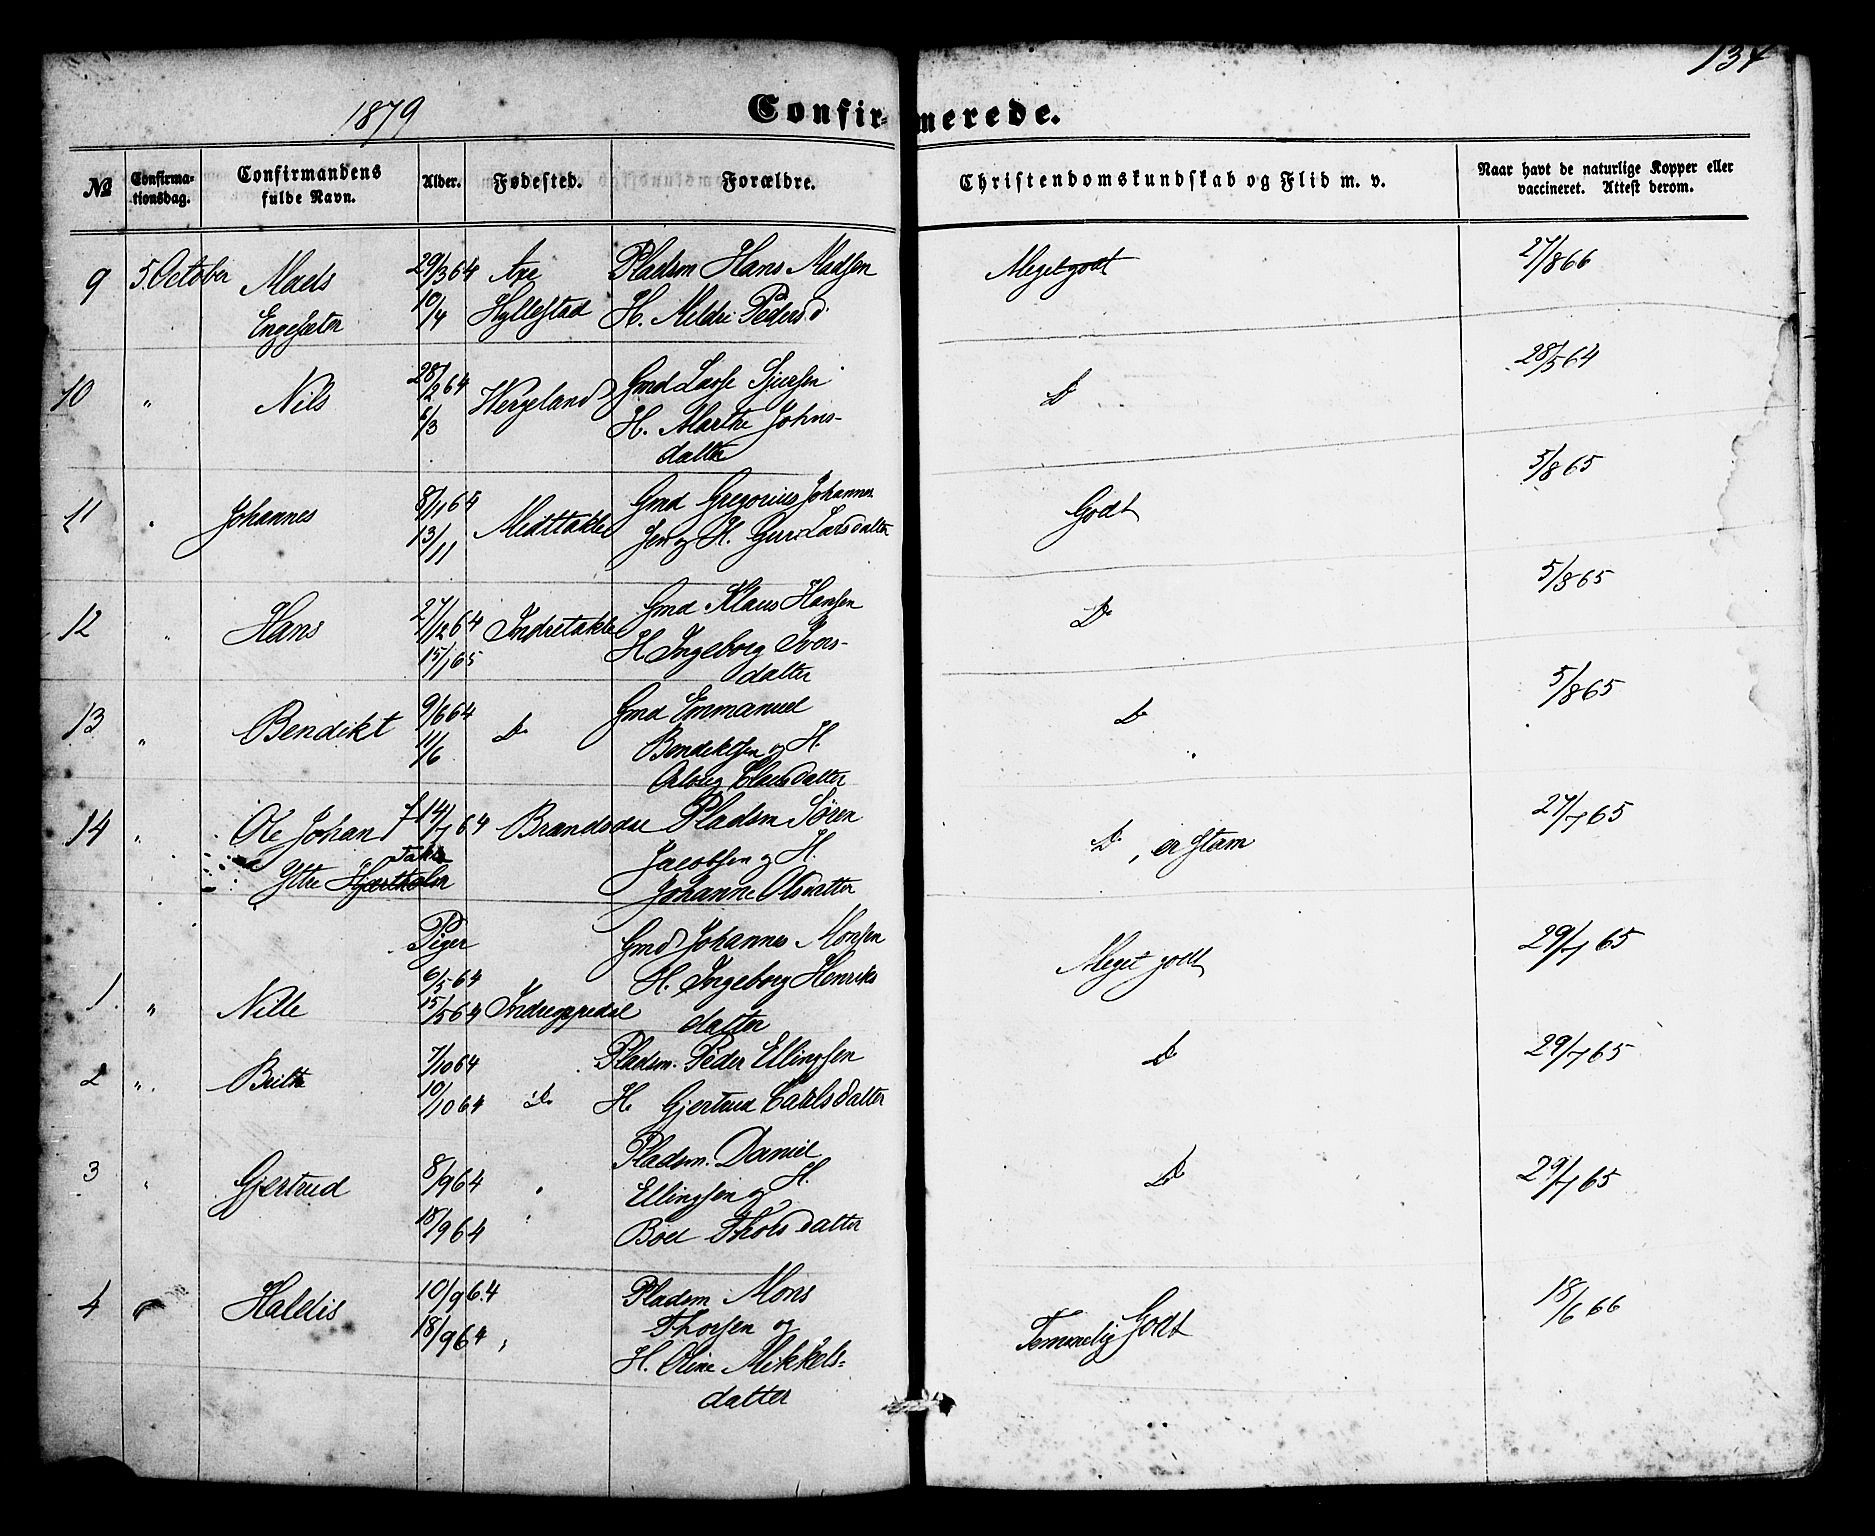 134
1879
Confirmerede.
№ Confirmationsdag. Confirmandens fulde Navn. Alder. Fødested. Forældre. Christendomskundskab og Flid m. v. Naar havt de naturlige Kopper eller vaccineret. Attest derom.
9 5. October Mads 29/3 64 Axe Pladsm Hans Madsen Meget godt 27/8 66
Engesæter 10/4 Hyllestad H. Meldri Pedersd
10 " Nils 28/2 64 Hergeland Gmd Lasse Sjursen D 28/5 64
6/3 H. Marthe Johns-
datter
11 " Johannes 8/11 64 Midttakle Gmd Gregorius Johannes Godt 5/8 65
13/11 sen og H. Guri Larsdatter
12 " Hans 27/12 64 Indretakle Gmd Klaus Hansen Do 5/8 65
15/1 65 H Ingeborg Ivers-
datter
13 " Bendikt 9/6 64 Do Gmd Emmanuel Do 5/8 65
11/6 Bendiktsen og H.
Clausdatter
14 " Ole Johan 14/7 64 Brandsdal Pladsm Søren Do, er stam 27/7 65
Takle Jacobsen og H.
Ytre Johanne Olsdatter
Piger
1. " Nille 6/5 64 Indreoppedal Gmd Johannes Monsen Meget godt 29/7 65
15/5 64 H. Ingeborg Henriks
datter
2 " Brithe 7/10 64 Do Pladsm. Peder Ellingsen Do 29/7 65
10/10 64 H. Gjertrud
3 " Gjertrud 8/9 64 " Pladsm. Daniel Do 29/7 65
18/9 64 Ellingsen og H.
Boel Thorsdatter
4 " Haldis 10/9 64 Pladsm Mons Temmelig Godt 18/6 66
18/9 64 " Thorsen og
H. Oline Mikkels-
datter